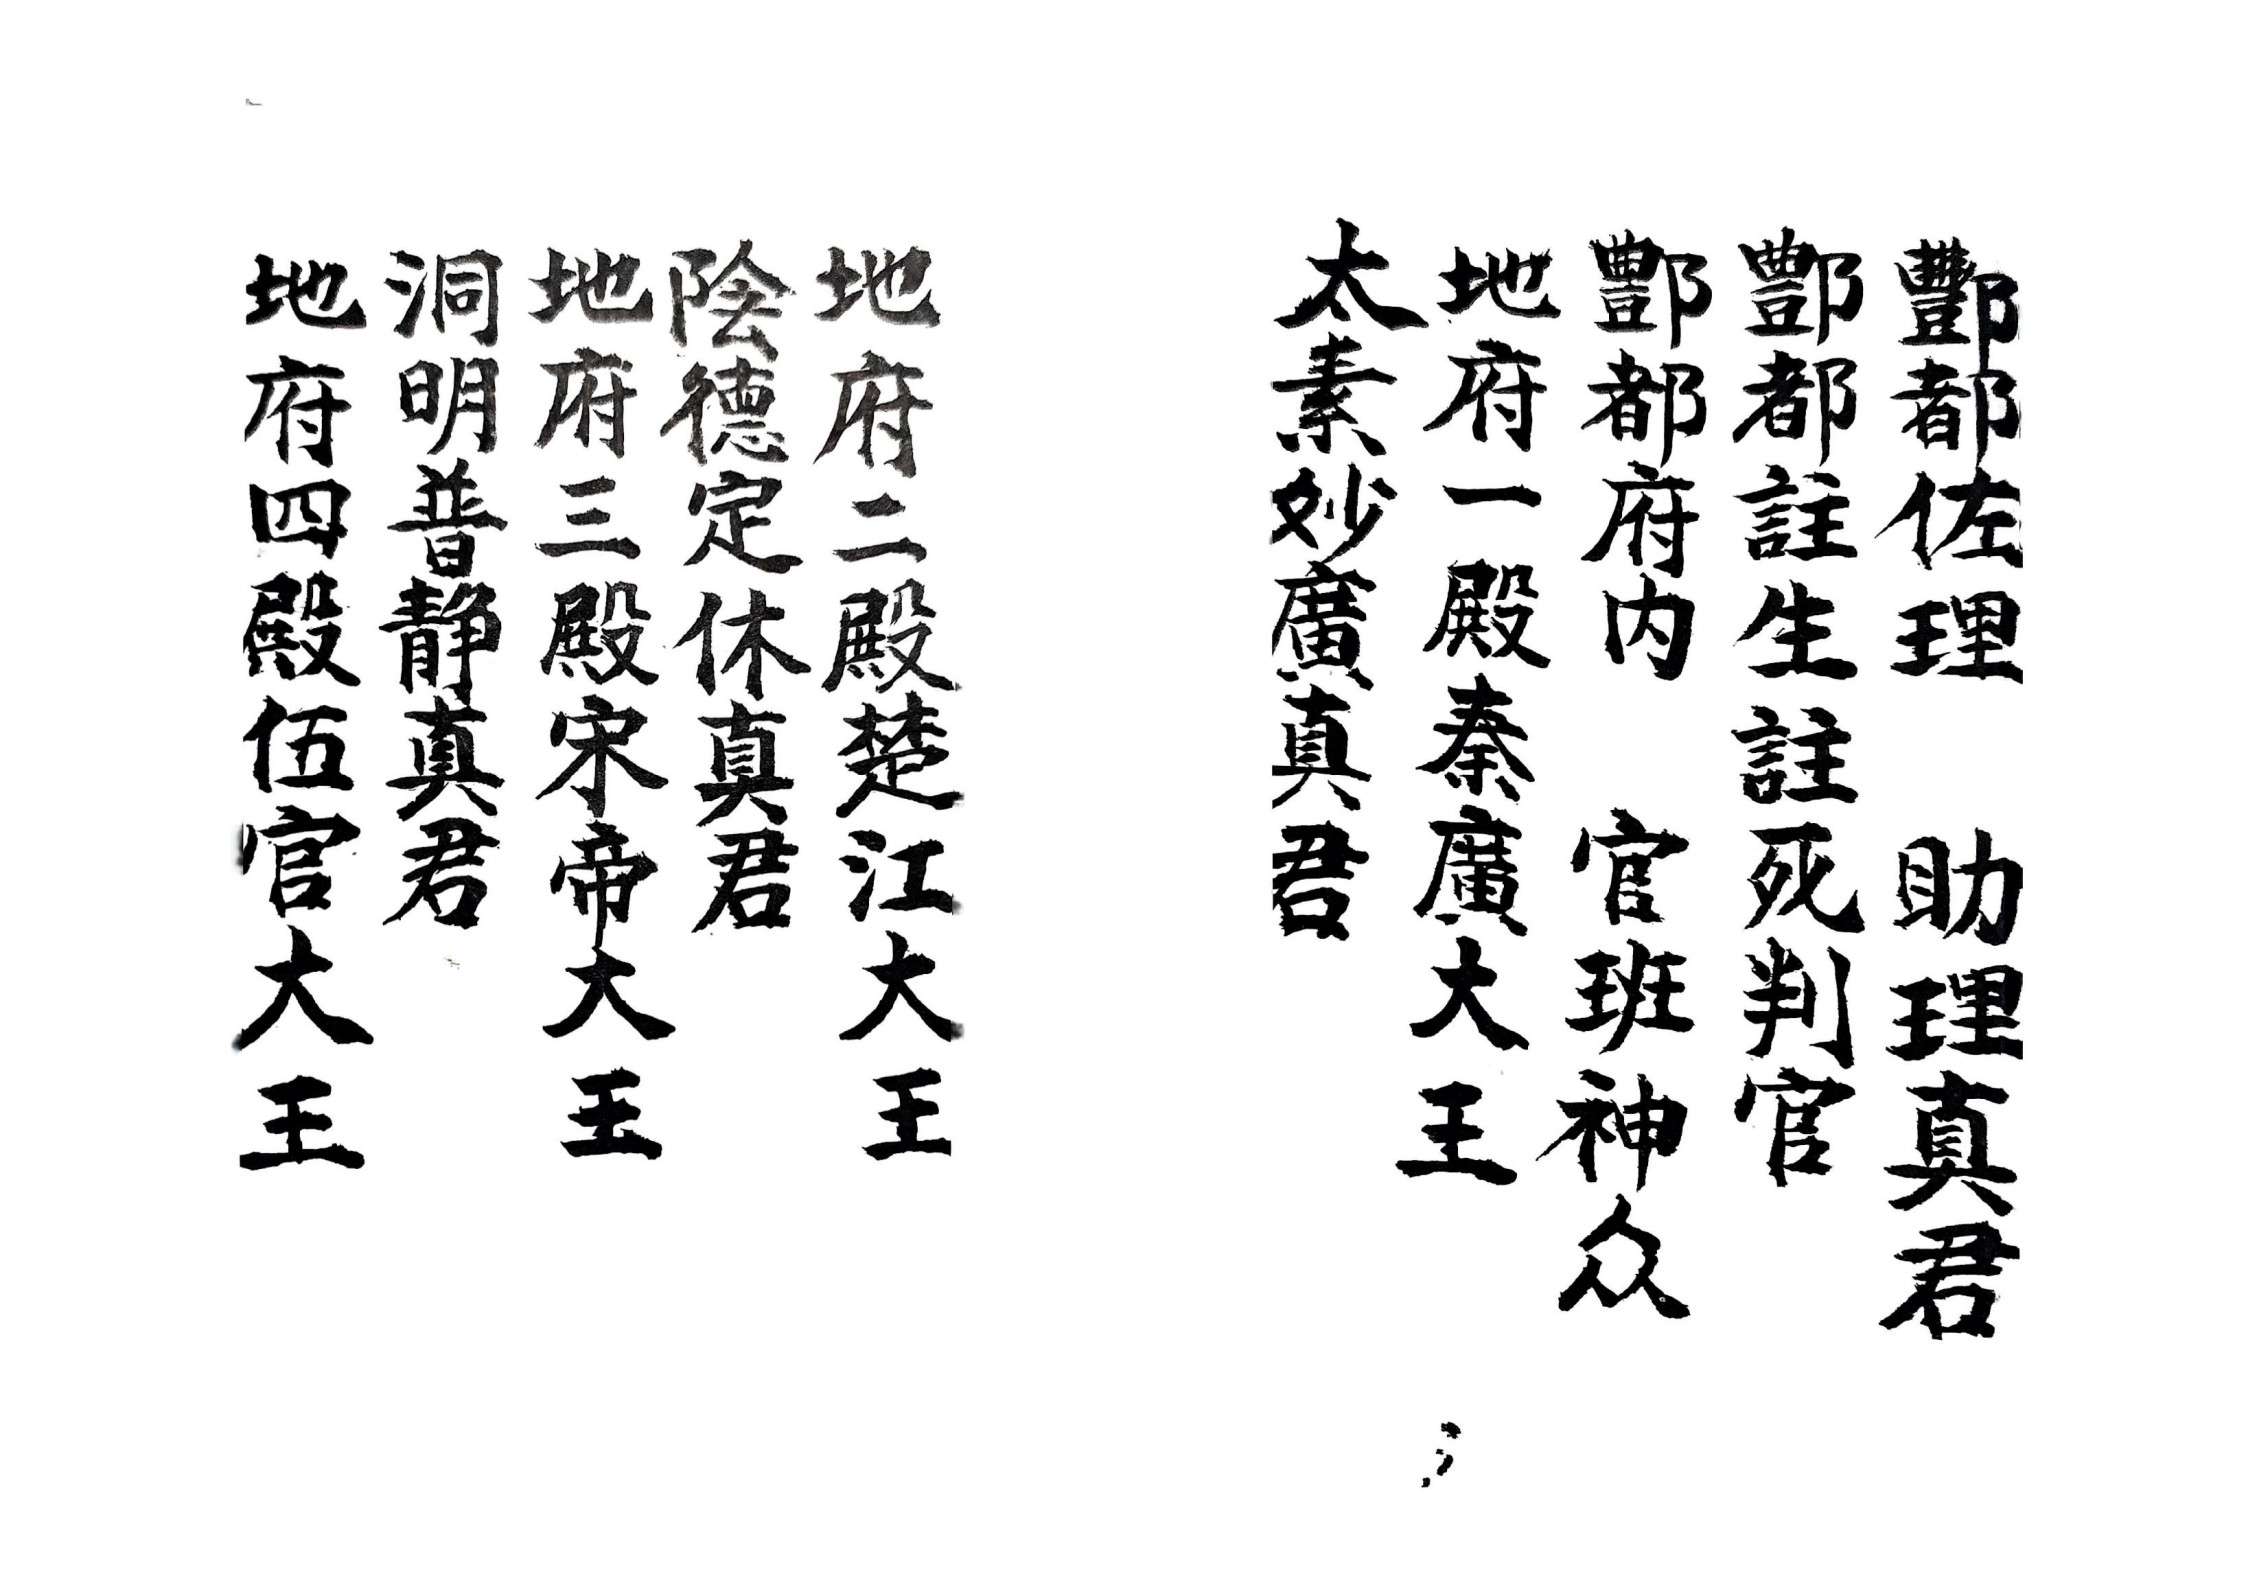 酆都佐理 助理真君
酆都註生註死判官
酆都府内 官班神众
地府一殿秦廣大王
太素妙廣真君
地府二殿楚江大王
陰德定休真君
地府三殿宋帝大王
洞明普静真君
地府四殿伍官大王